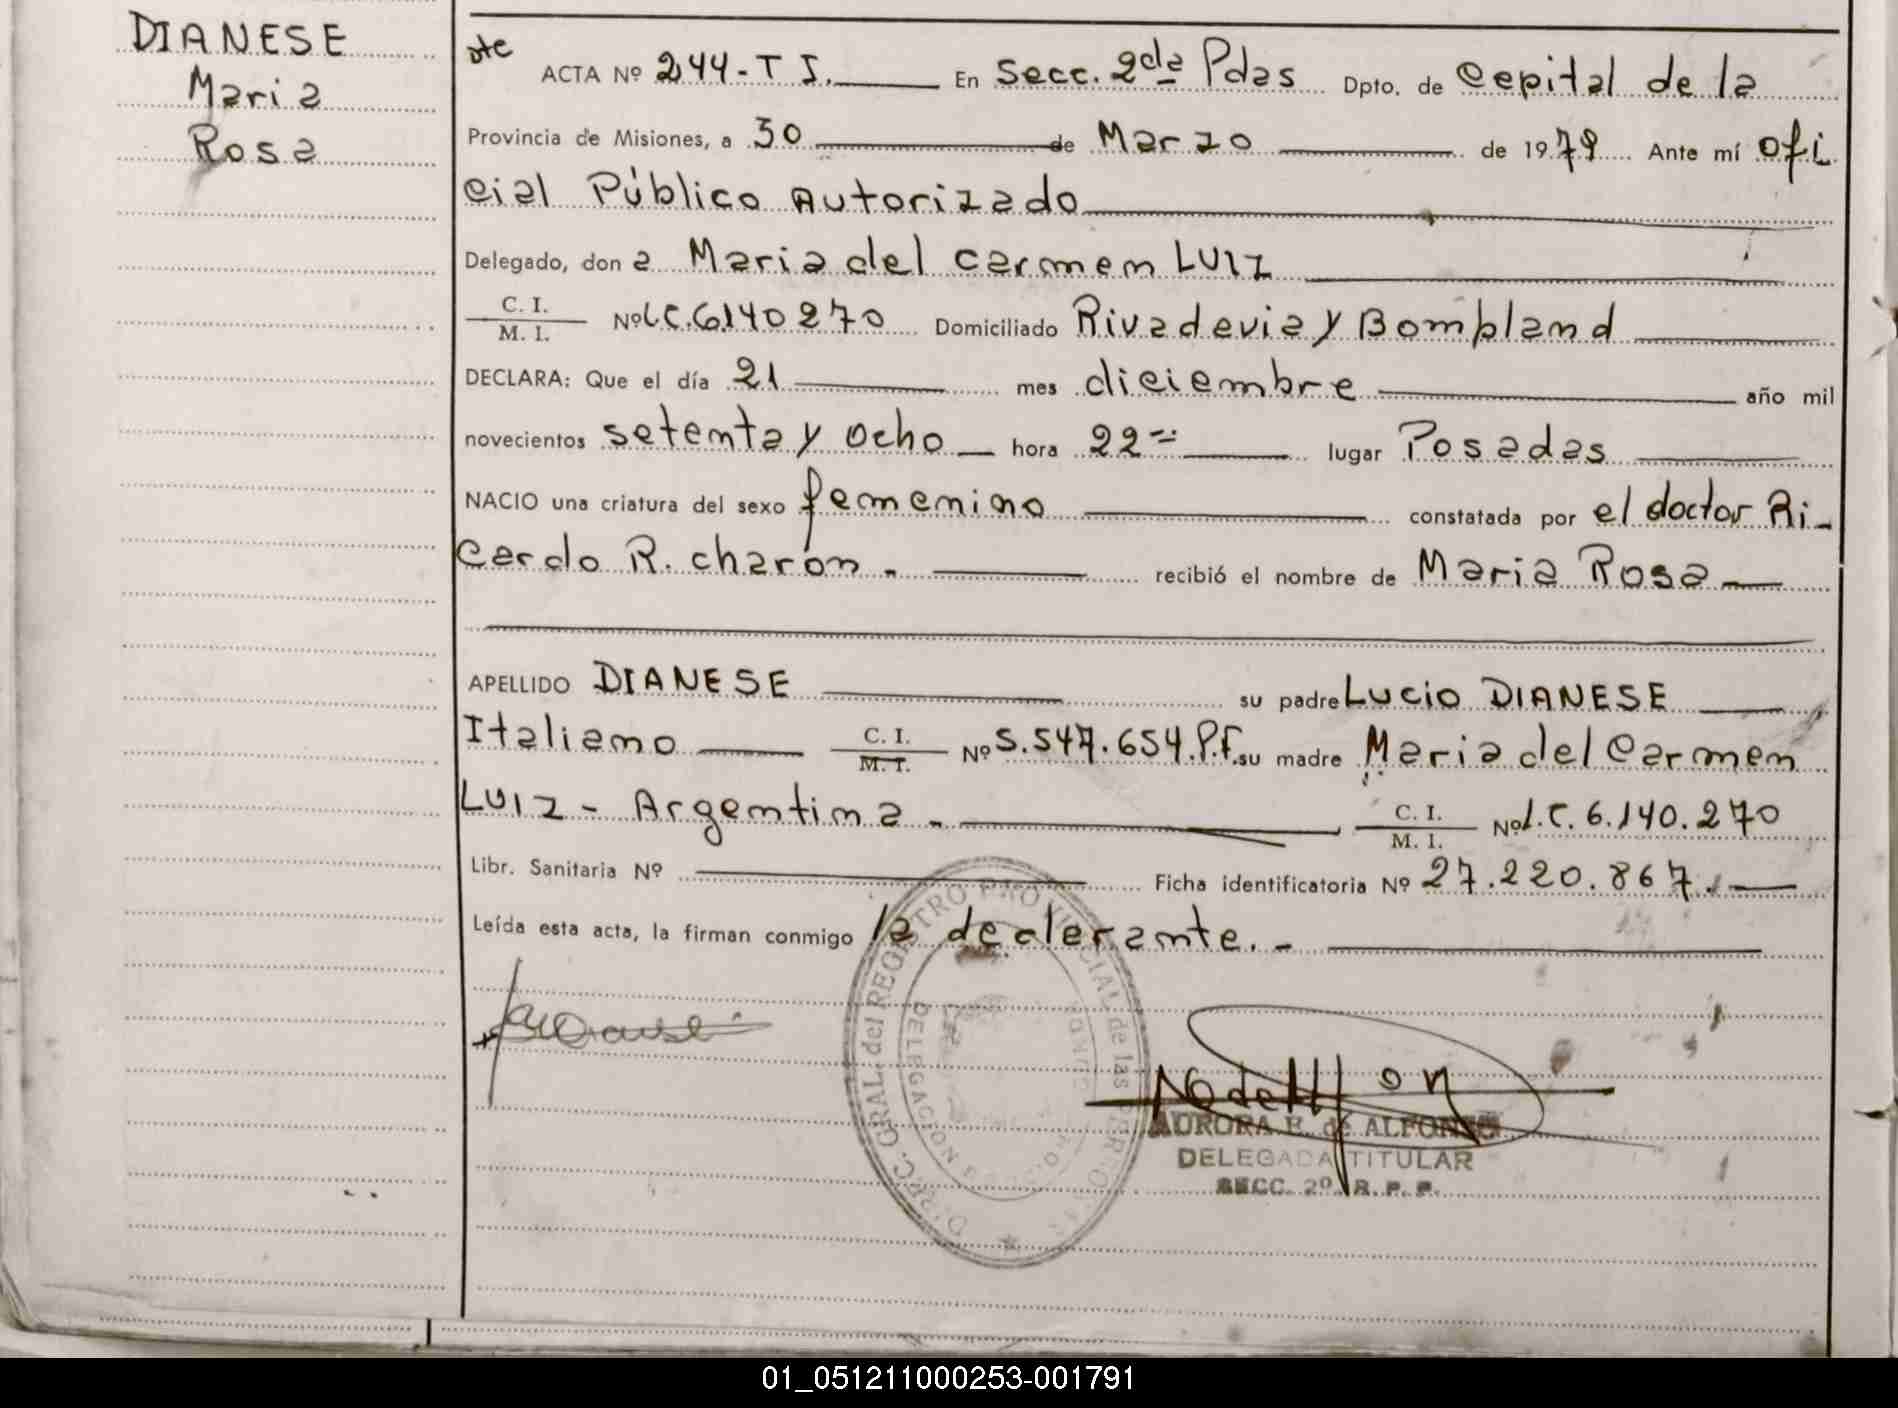 DIANESE
Maria
Rosa
ACTA Nº 244-T I. En Secc. 2da Pdas Dpto. de Capital de la
Provincia de Misiones, a 30 de Marzo de 1979 Ante mí ofi
cial Público Autorizado
Delegado, don a Maria del Carmen LUIZ
C. I.
M. I. Nº L.C. 6.140270 Domiciliado Rivadavia y Bompland
DECLARA: Que el día 21 mes diciembre año mil
novecientos setenta y ocho hora 22= lugar Posadas
NACIO una criatura del sexo femenino constatada por el doctor Ri-
cardo R. charón. recibió el nombre de Maria Rosa
APELLIDO DIANESE su padre Lucio DIANESE
Italiano C. I. M. I. Nº 5.547.654.P.F. su madre Maria del Carmen
LUIZ - Argentina. C. I. M. I. Nº L.C. 6.140.270
Libr. Sanitaria Nº Ficha identificatoria Nº 27.220.867.
Leída esta acta, la firman conmigo la declarante. -
DIREC. GRAL. del REGISTRO PROVINCIAL de las PERSONAS
DELEGACION
AURORA E. de ALFONSO
DELEGADA TITULAR
SECC. 2º R. P. P.
01_051211000253-001791